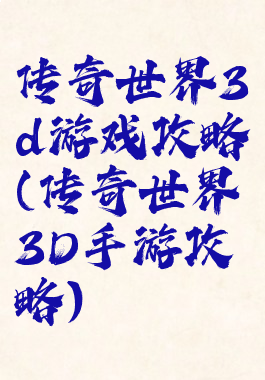 传奇世界3
d游戏攻略
(传奇世界
3D手游攻
略)